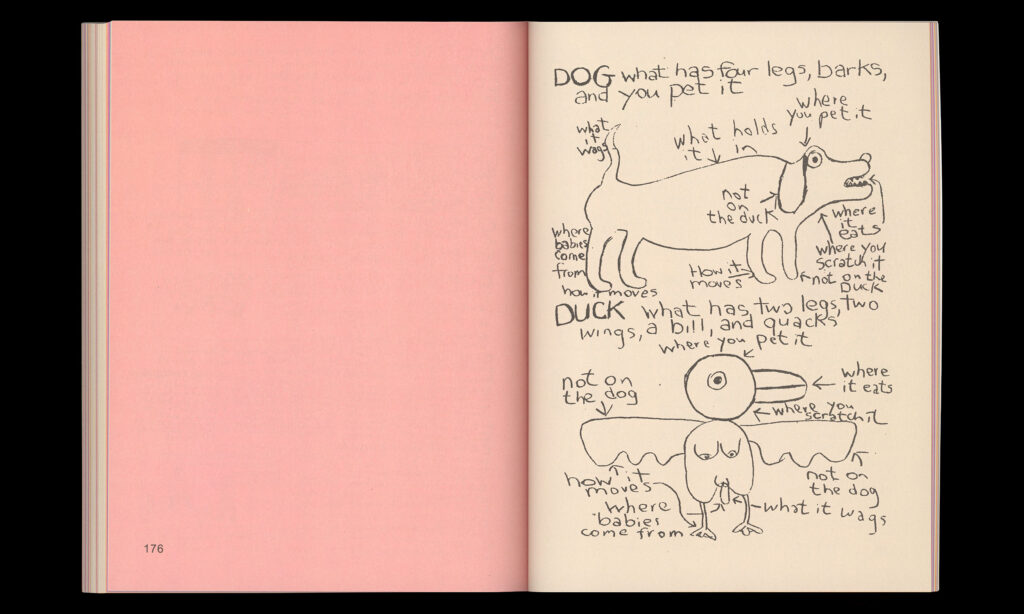 176
DOG what has four legs, barks,
and you pet it
what
it
wags
what holds
it in
where
you pet it
not
on
the duck
where
it
eats
where you
scratch it
not on the
DUCK
where
babies
come
from
How it
moves
how it moves
DUCK what has two legs, two
wings, a bill, and quacks
where you pet it
not on
the dog
where
it eats
where you
scratch it
how it
moves
not on
the dog
where
babies
come from
what it wags